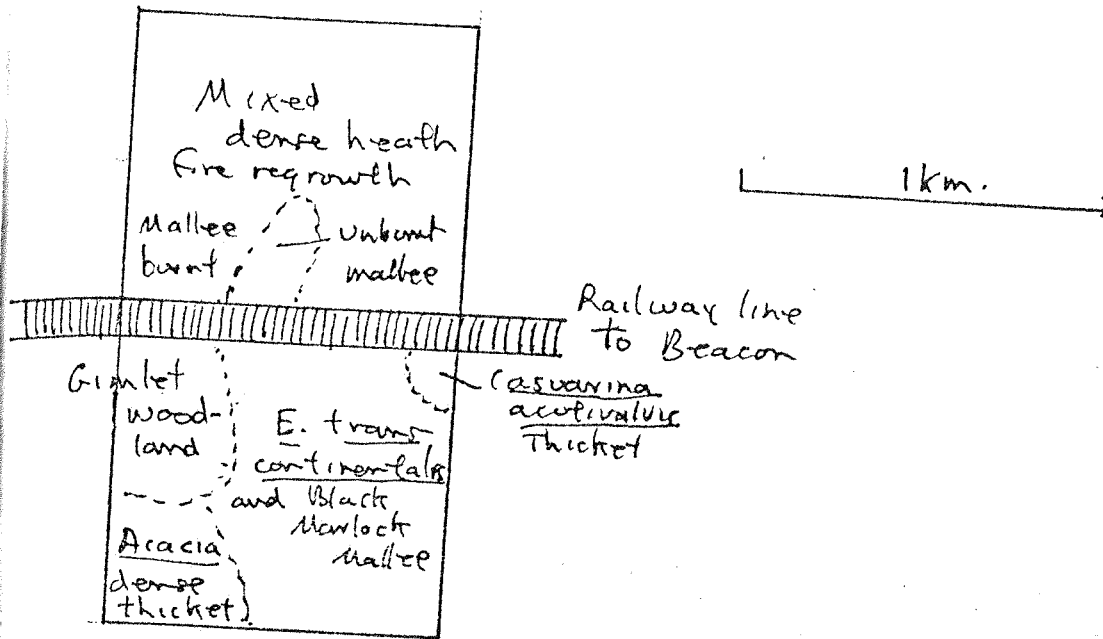 Mixed
dense heath
fire regrowth
Mallee
burnt
unburnt
mallee
1km.
Railway line
to Beacon
Gimlet
wood-
land
E. trans
continentalis
and Black
Marlock
Mallee
Casuarina
acutivalvis
Thicket
Acacia
dense
thicket